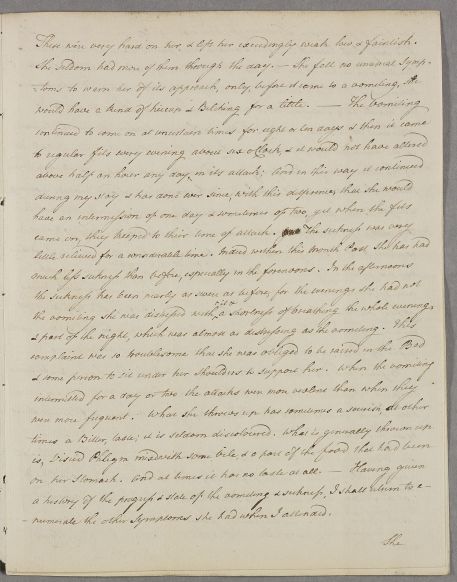 These were very hard on her, & left her exceedingly weak low & faintish.
She seldom had more of them through the day. — She felt no unusual Symp-
-toms to warn her of its approach, only, before it came to a vomiting, she
would have a kind of hiccup & Belching for a little. — The Vomiting
continued to come on at uncertain times for eight or ten days & then it came
to regular fits every evening about six o'Clock, & it would not have altered
above half an hour any day, in its attack; And in this way it continued
during my stay & has done ever since, with this difference, that she would
have an intermission of one day & sometimes of two, yet when the fits
came on, they keeped to their time of attack. The sickness was very
little relieved for a considerable time. Indeed within this Month Past She has had
much less sickness than before, especially in the forenoons. In the afternoons
the sickness has been nearly as severe as before, for the evenings she had not
the vomiting she was distressed with a fit of shortness of breathing the whole evening
& part of the night, which was almost as distressing as the vomiting. This
complaint was so troublesome that she was obliged to be raised in the Bed
& some person to sit under her shoulders to support her. When the vomiting
intermitted for a day or two the attacks were more violent than when they
were more frequent. What she throws up has sometimes a sourish, at other
times a Bitter, taste; it is seldom discoloured. What is generally thrown up
is, Viscid Phlegm mixed with some bile & a part of the food that had been
on her Stomach. And at times it has no taste at all. — Having given
a history of the progress & state of the vomiting & sickness, I shall return to e-
-numerate the other Symptomes she had when I attended.
She